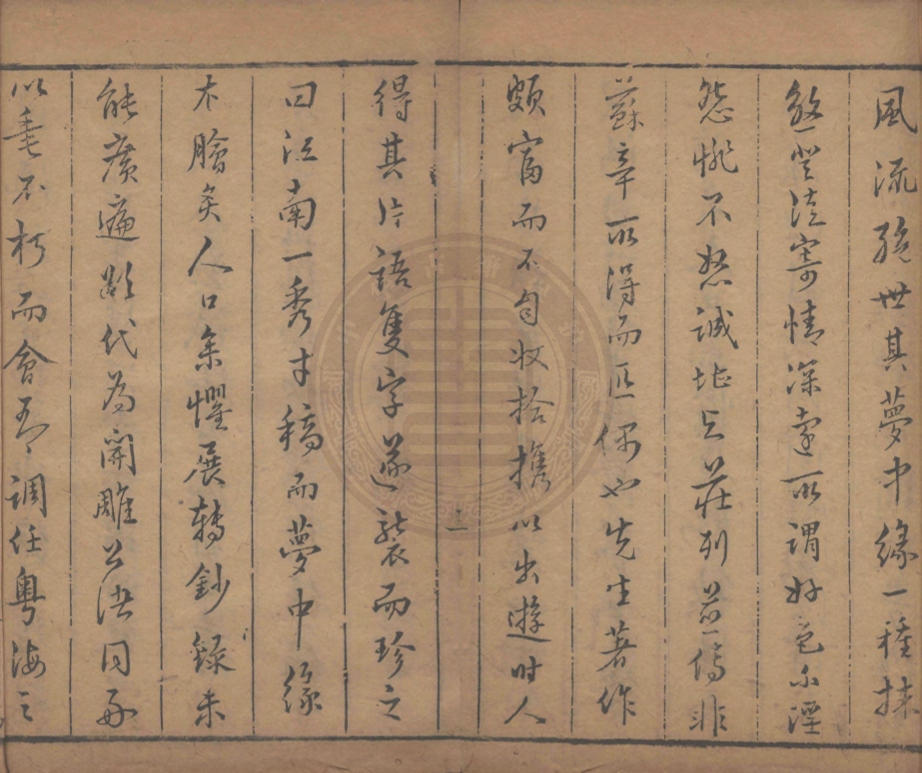 風流絶世其夢中緣一種抹
煞登徒寄情深遠所謂好色不淫
怨悱不怒誠堪與莊列並傳非
蘇辛所得而匹偶也先生著作
頗富而不自收拾攜以出遊時人
二
得其片語隻字遂襲而珍之
曰江南一秀才稿而夢中緣
尤膾炙人口余懼展轉鈔錄未
能廣遍欲代為開雕公諸同好
以垂不朽而會有調任粤海之